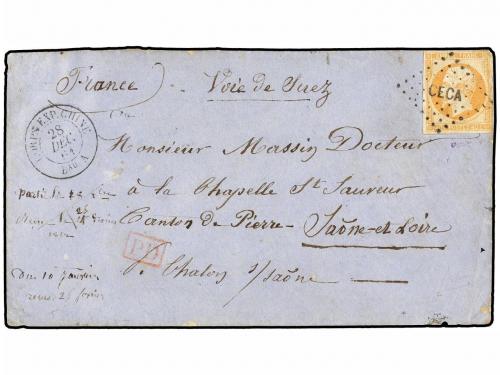 France Voie de Suez
CECA
CORPS EXP. CHINE
28
DEC.
BAU A
Monsieur Massin Docteur
à la Chapelle St Sauveur
Canton de Pierre - Saône-et-Loire
P.D.
p. Chalon s/saône
du 10 janvier